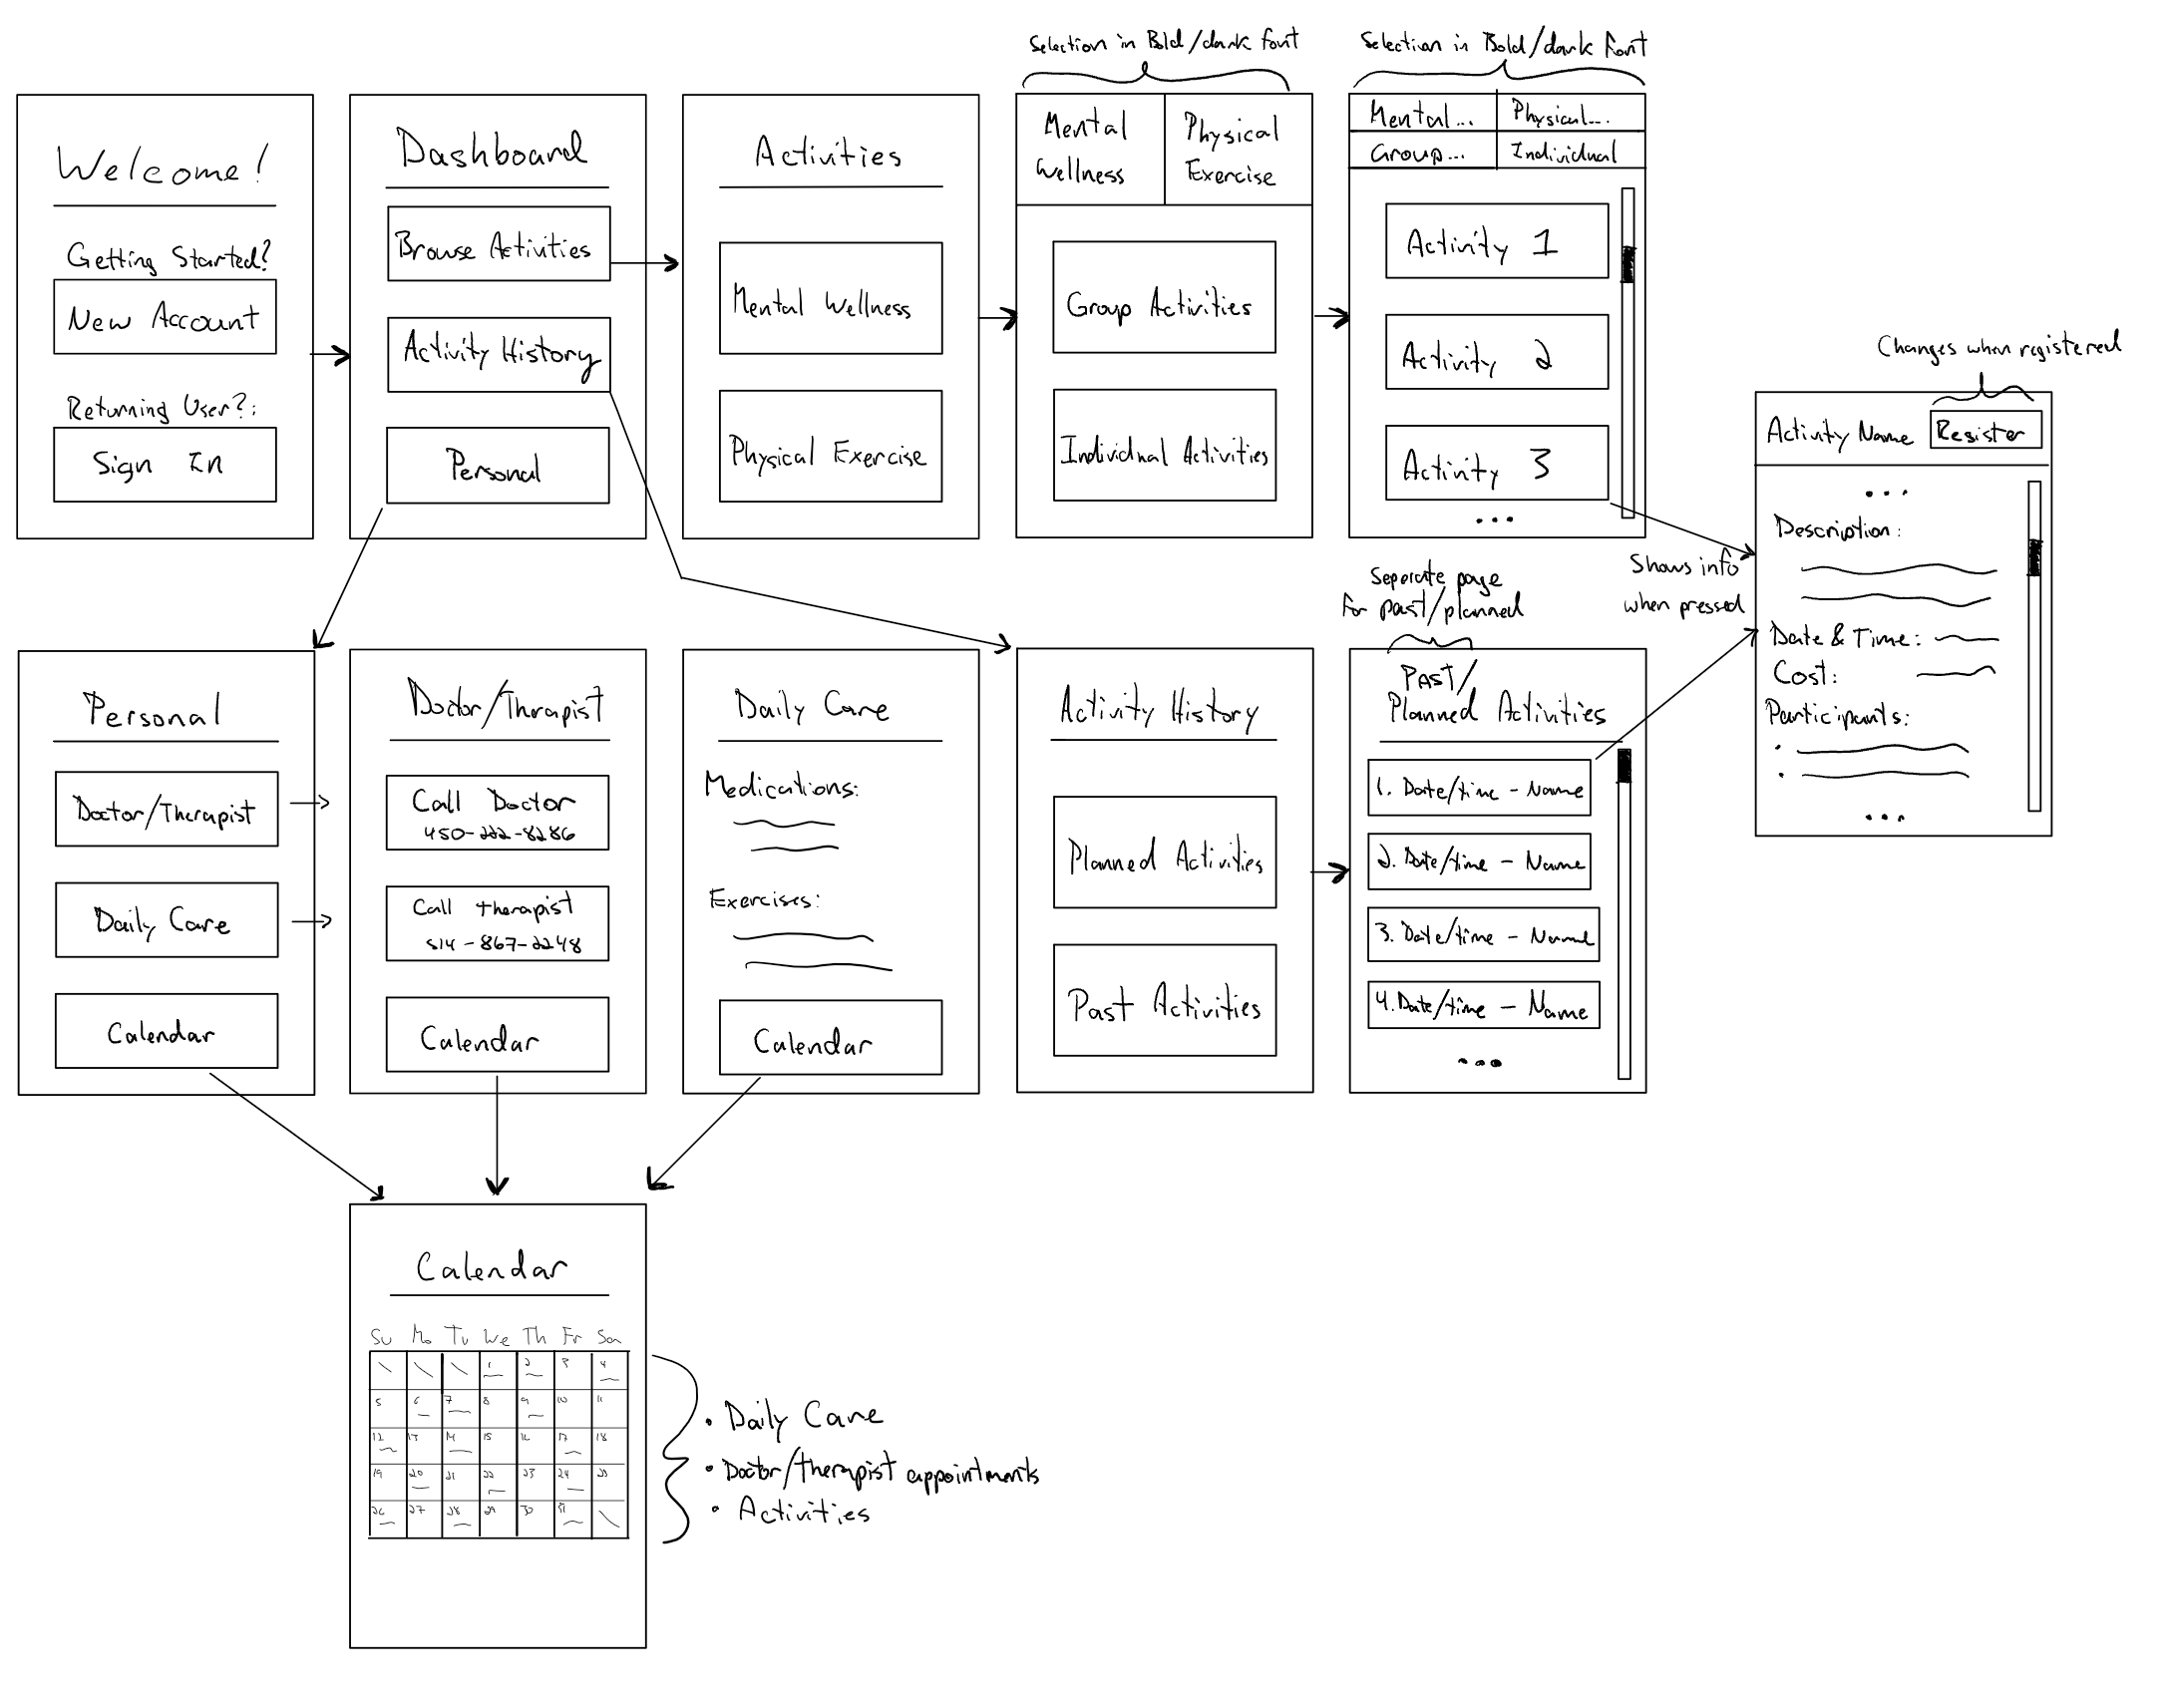 Selection in Bold/dark font
Selection in Bold/dark font
Welcome!
Getting Started?
New Account
Returning User?:
Sign In
Dashboard
Browse Activities
Activity History
Personal
Activities
Mental Wellness
Physical Exercise
Mental
Wellness
Physical
Exercise
Group Activities
Individual Activities
Mental... Physical...
Group... Individual
Activity 1
Activity 2
Activity 3
...
Shows info
when pressed
Changes when registered
Activity Name Register
...
Description:
Date & Time:
Cost:
Participants:
...
Personal
Doctor/Therapist
Daily Care
Calendar
Doctor/Therapist
Call Doctor
450-222-8286
Call therapist
514-867-2248
Calendar
Daily Care
Medications:
Exercises:
Calendar
Activity History
Planned Activities
Past Activities
Seperate page
For past/planned
Past/
Planned Activities
1. Date/time - Name
2. Date/time - Name
3. Date/time - Name
4. Date/time - Name
...
Calendar
Su Mo Tu We Th Fr Sa
1 2 3 4
5 6 7 8 9 10 11
12 13 14 15 16 17 18
19 20 21 22 23 24 25
26 27 28 29 30 31
• Daily Care
• Doctor/therapist appointments
• Activities